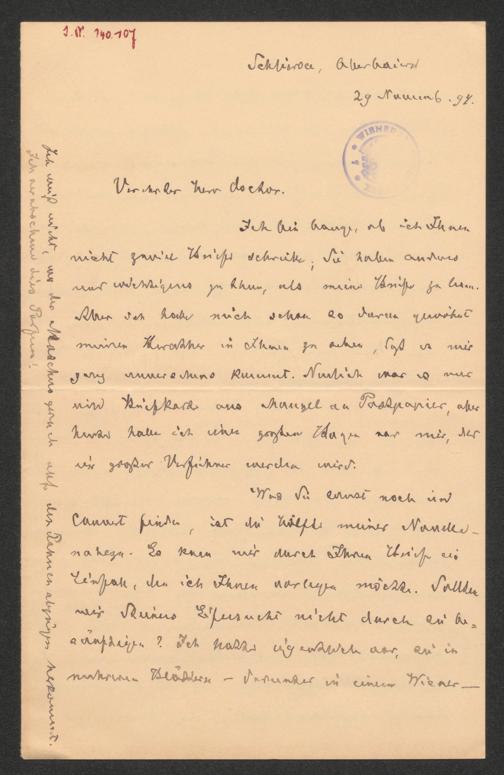 J.N. 140.107
Schliersee, Oberbaiern
29 Novemb. 94.
WIENER
Verehrter Herr Doctor.
Ich bin bange, ob ich Ihnen
nicht zuviel Briefe schreibe; Sie haben anderes
und wichtigeres zu thun, als meine Briefe zu lesen.
Aber ich habe mich schon so daran gewöhnt
meinen Berather in Ihnen zu sehen, daß es mir
ganz kommt. Neulich war es nur
eine aus Mangel an Postpapier, aber
heute habe ich einen großen Bogen vor mir, der
ein großer Verführer werden wird.
Was Sie sonst noch im
Couvert finden, ist die Hälfte meiner Novelle
Es kam mir durch Ihren Brief ein
Einfall, den ich Ihnen vorlegen möchte. Sollten
wir Eifersucht nicht durch ein
Ich hatte eigentlich vor, ein in
mehreren Blättern – darunter in einem Wiener –
Ich weiß nicht, wo der Moschusgeruch auf den
Ich verabscheue dies Parfum!